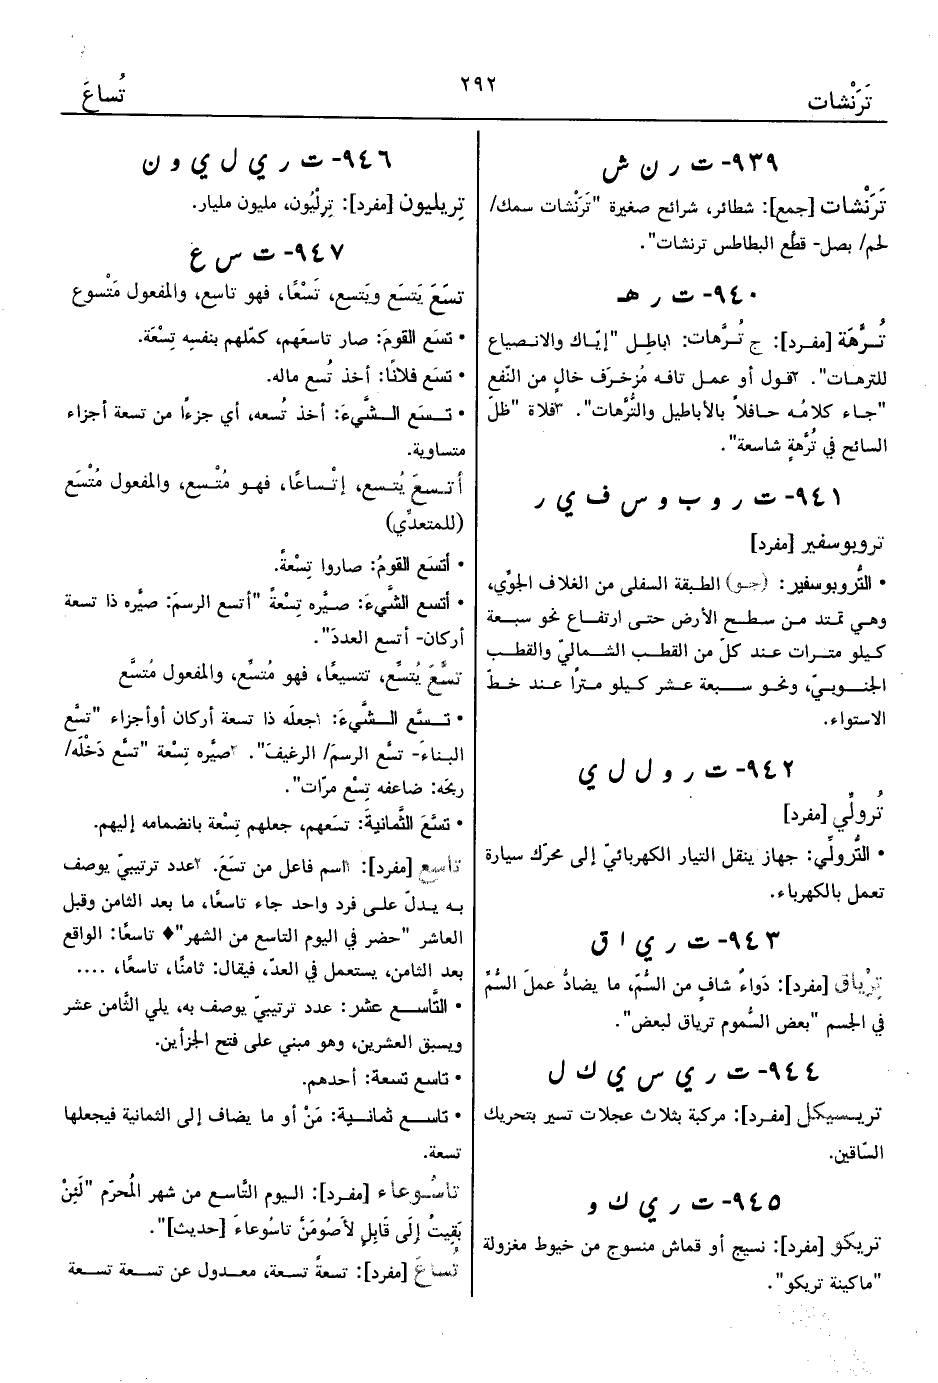 تَرَنْشات
٢٩٢
تُساعَ
٩٣٩- ت ر ن ش
تَرَنْشات [جمع]: شطائر، شرائح صغيرة "تَرَنْشات سمك/
لحم/ بصل- قطّع البطاطس ترنشات".
٩٤٠- ت ر هـ
تُرَّهَة [مفرد]: ج تُرَّهات: ١باطِل "إيّاك والانصياع
للترهات". ٢قول أو عمل تافه مُزخرَف خالٍ من النّفع
"جاء كلامُه حافلاً بالأباطيل والتُّرَّهات". ٣فلاة "ظلّ
السائح في تُرَّهةٍ شاسعة".
٩٤١- ت ر و ب و س ف ي ر
تروبوسفير [مفرد]
• التُّروبوسفير: (جو) الطبقة السفلى من الغلاف الجوِّي،
وهي تمتد من سطح الأرض حتى ارتفاع نحو سبعة
كيلو مترات عند كلّ من القطب الشماليّ والقطب
الجنوبيّ، ونحو سبعة عشر كيلو مترًا عند خطّ
الاستواء.
٩٤٢- ت ر و ل ل ي
تُرولِّي [مفرد]
• التُّرولِّي: جهاز ينقل التيار الكهربائيّ إلى محرّك سيارة
تعمل بالكهرباء.
٩٤٣- ت ر ي ا ق
تِرْياق [مفرد]: دَواءٌ شافٍ من السُّمّ، ما يضادُّ عملَ السُّمِّ
في الجسم "بعض السُّموم ترياق لبعض".
٩٤٤- ت ر ي س ي ك ل
تريسيكل [مفرد]: مركبة بثلاث عجلات تسير بتحريك
السّاقين.
٩٤٥- ت ر ي ك و
تريكو [مفرد]: نسيج أو قماش منسوج من خيوط مغزولة
"ماكينة تريكو".
٩٤٦- ت ر ي ل ي و ن
تِريليون [مفرد]: تِرلْيُون، مليون مليار.
٩٤٧- ت س ع
تسَعَ يَتسَع ويَتسِع، تَسْعًا، فهو تاسع، والمفعول مَتْسوع
• تسَع القومَ: صار تاسعَهم، كمّلهم بنفسِه تِسْعَة.
• تسَع فلانًا: أخذ تُسع ماله.
• تسَع الشَّيءَ: أخذ تُسعه، أي جزءًا من تسعة أجزاء
متساوية.
أتسعَ يُتسع، إتْساعًا، فهو مُتْسع، والمفعول مُتْسَع
(للمتعدِّي)
• أتسَع القومُ: صاروا تِسْعةً.
• أتسع الشَّيءَ: صيَّره تِسْعةً "أتسع الرسمَ: صيَّره ذا تسعة
أركان- أتسع العددَ".
تسَّعَ يُتسِّع، تتسيعًا، فهو مُتسِّع، والمفعول مُتسَّع
• تسَّع الشَّيءَ: ١جعلَه ذا تسعة أركان أوأجزاء "تسَّع
البناءَ- تسَّع الرسمَ/ الرغيفَ". ٢صيَّره تِسْعة "تسَّع دَخْلَه/
ربحَه: ضاعفه تِسْع مرّات".
• تسَّعَ الثَّمانيةَ: تسَعهم، جعلهم تِسْعة بانضمامه إليهم.
تاسِع [مفرد]: ١اسم فاعل من تسَعَ. ٢عدد ترتيبيّ يوصف
به يدلّ على فرد واحد جاء تاسعًا، ما بعد الثامن وقبل
العاشر "حضر في اليوم التاسع من الشهر"♦ تاسعًا: الواقع
بعد الثامن، يستعمل في العدّ، فيقال: ثامنًا، تاسعًا، ....
• التَّاسع عشر: عدد ترتيبيّ يوصف به، يلي الثّامن عشر
ويسبق العشرين، وهو مبني على فتح الجزأين.
• تاسع تسعة: أحدهم.
• تاسع ثمانية: مَنْ أو ما يضاف إلى الثمانية فيجعلها
تسعة.
تاسُوعاء [مفرد]: اليوم التَّاسع من شهر المُحرّم "لَئِنْ
بَقِيتُ إِلَى قَابِلٍ لأَصُومَنَّ تاسُوعاءَ [حديث]".
تُساعَ [مفرد]: تسعةً تسعة، معدول عن تسعة تسعة